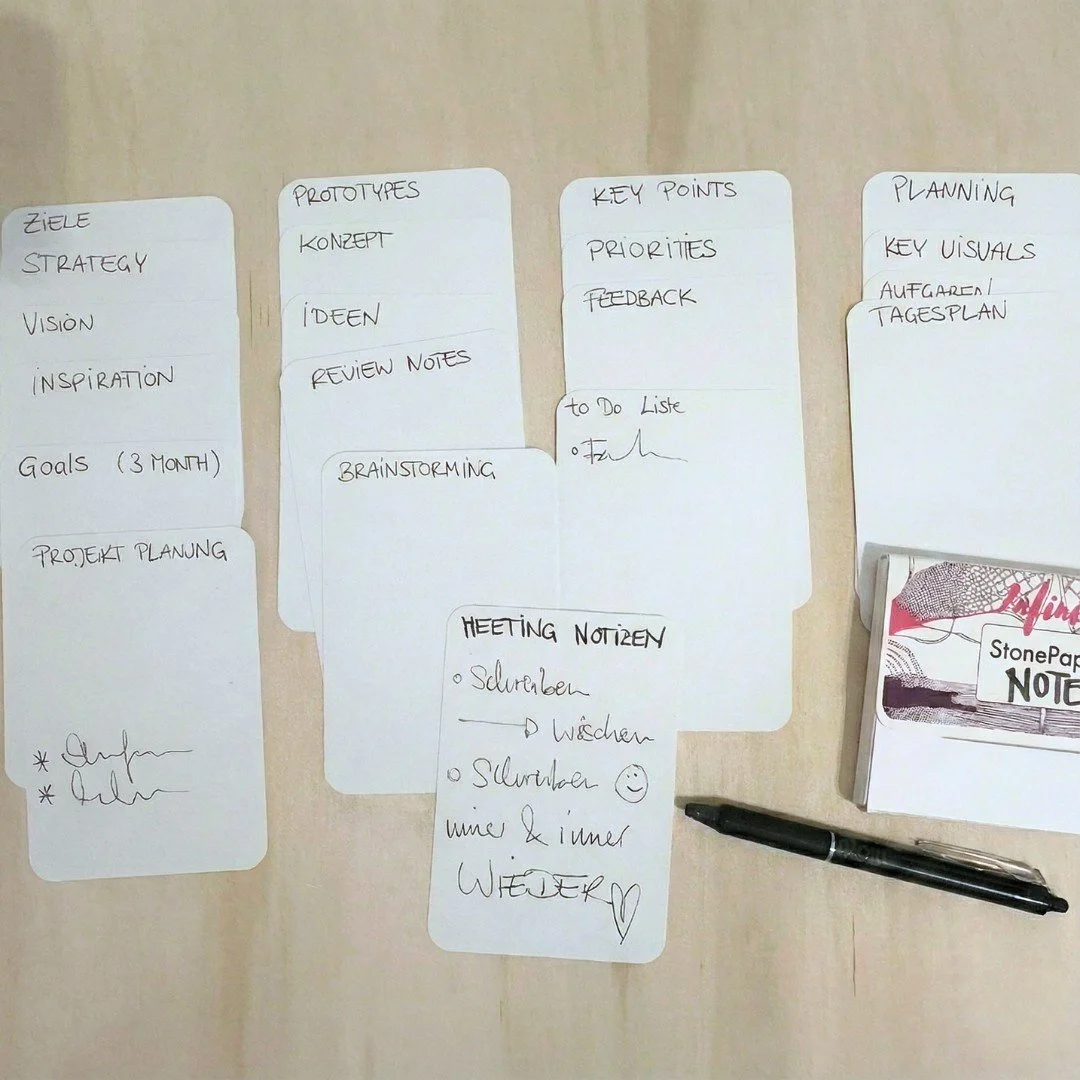 ZIELE
STRATEGY
VISION
INSPIRATION
Goals (3 MONTH)
PROJEKT PLANUNG
*
*
PROTOTYPES
KONZEPT
IDEEN
REVIEW NOTES
BRAINSTORMING
KEY POINTS
PRIORITIES
FEEDBACK
to Do Liste
MEETING NOTIZEN
Schreiben
→ Wischen
Schreiben ☺
& immer
WIEDER ♡
PLANNING
KEY VISUALS
AUFGABEN/
TAGESPLAN